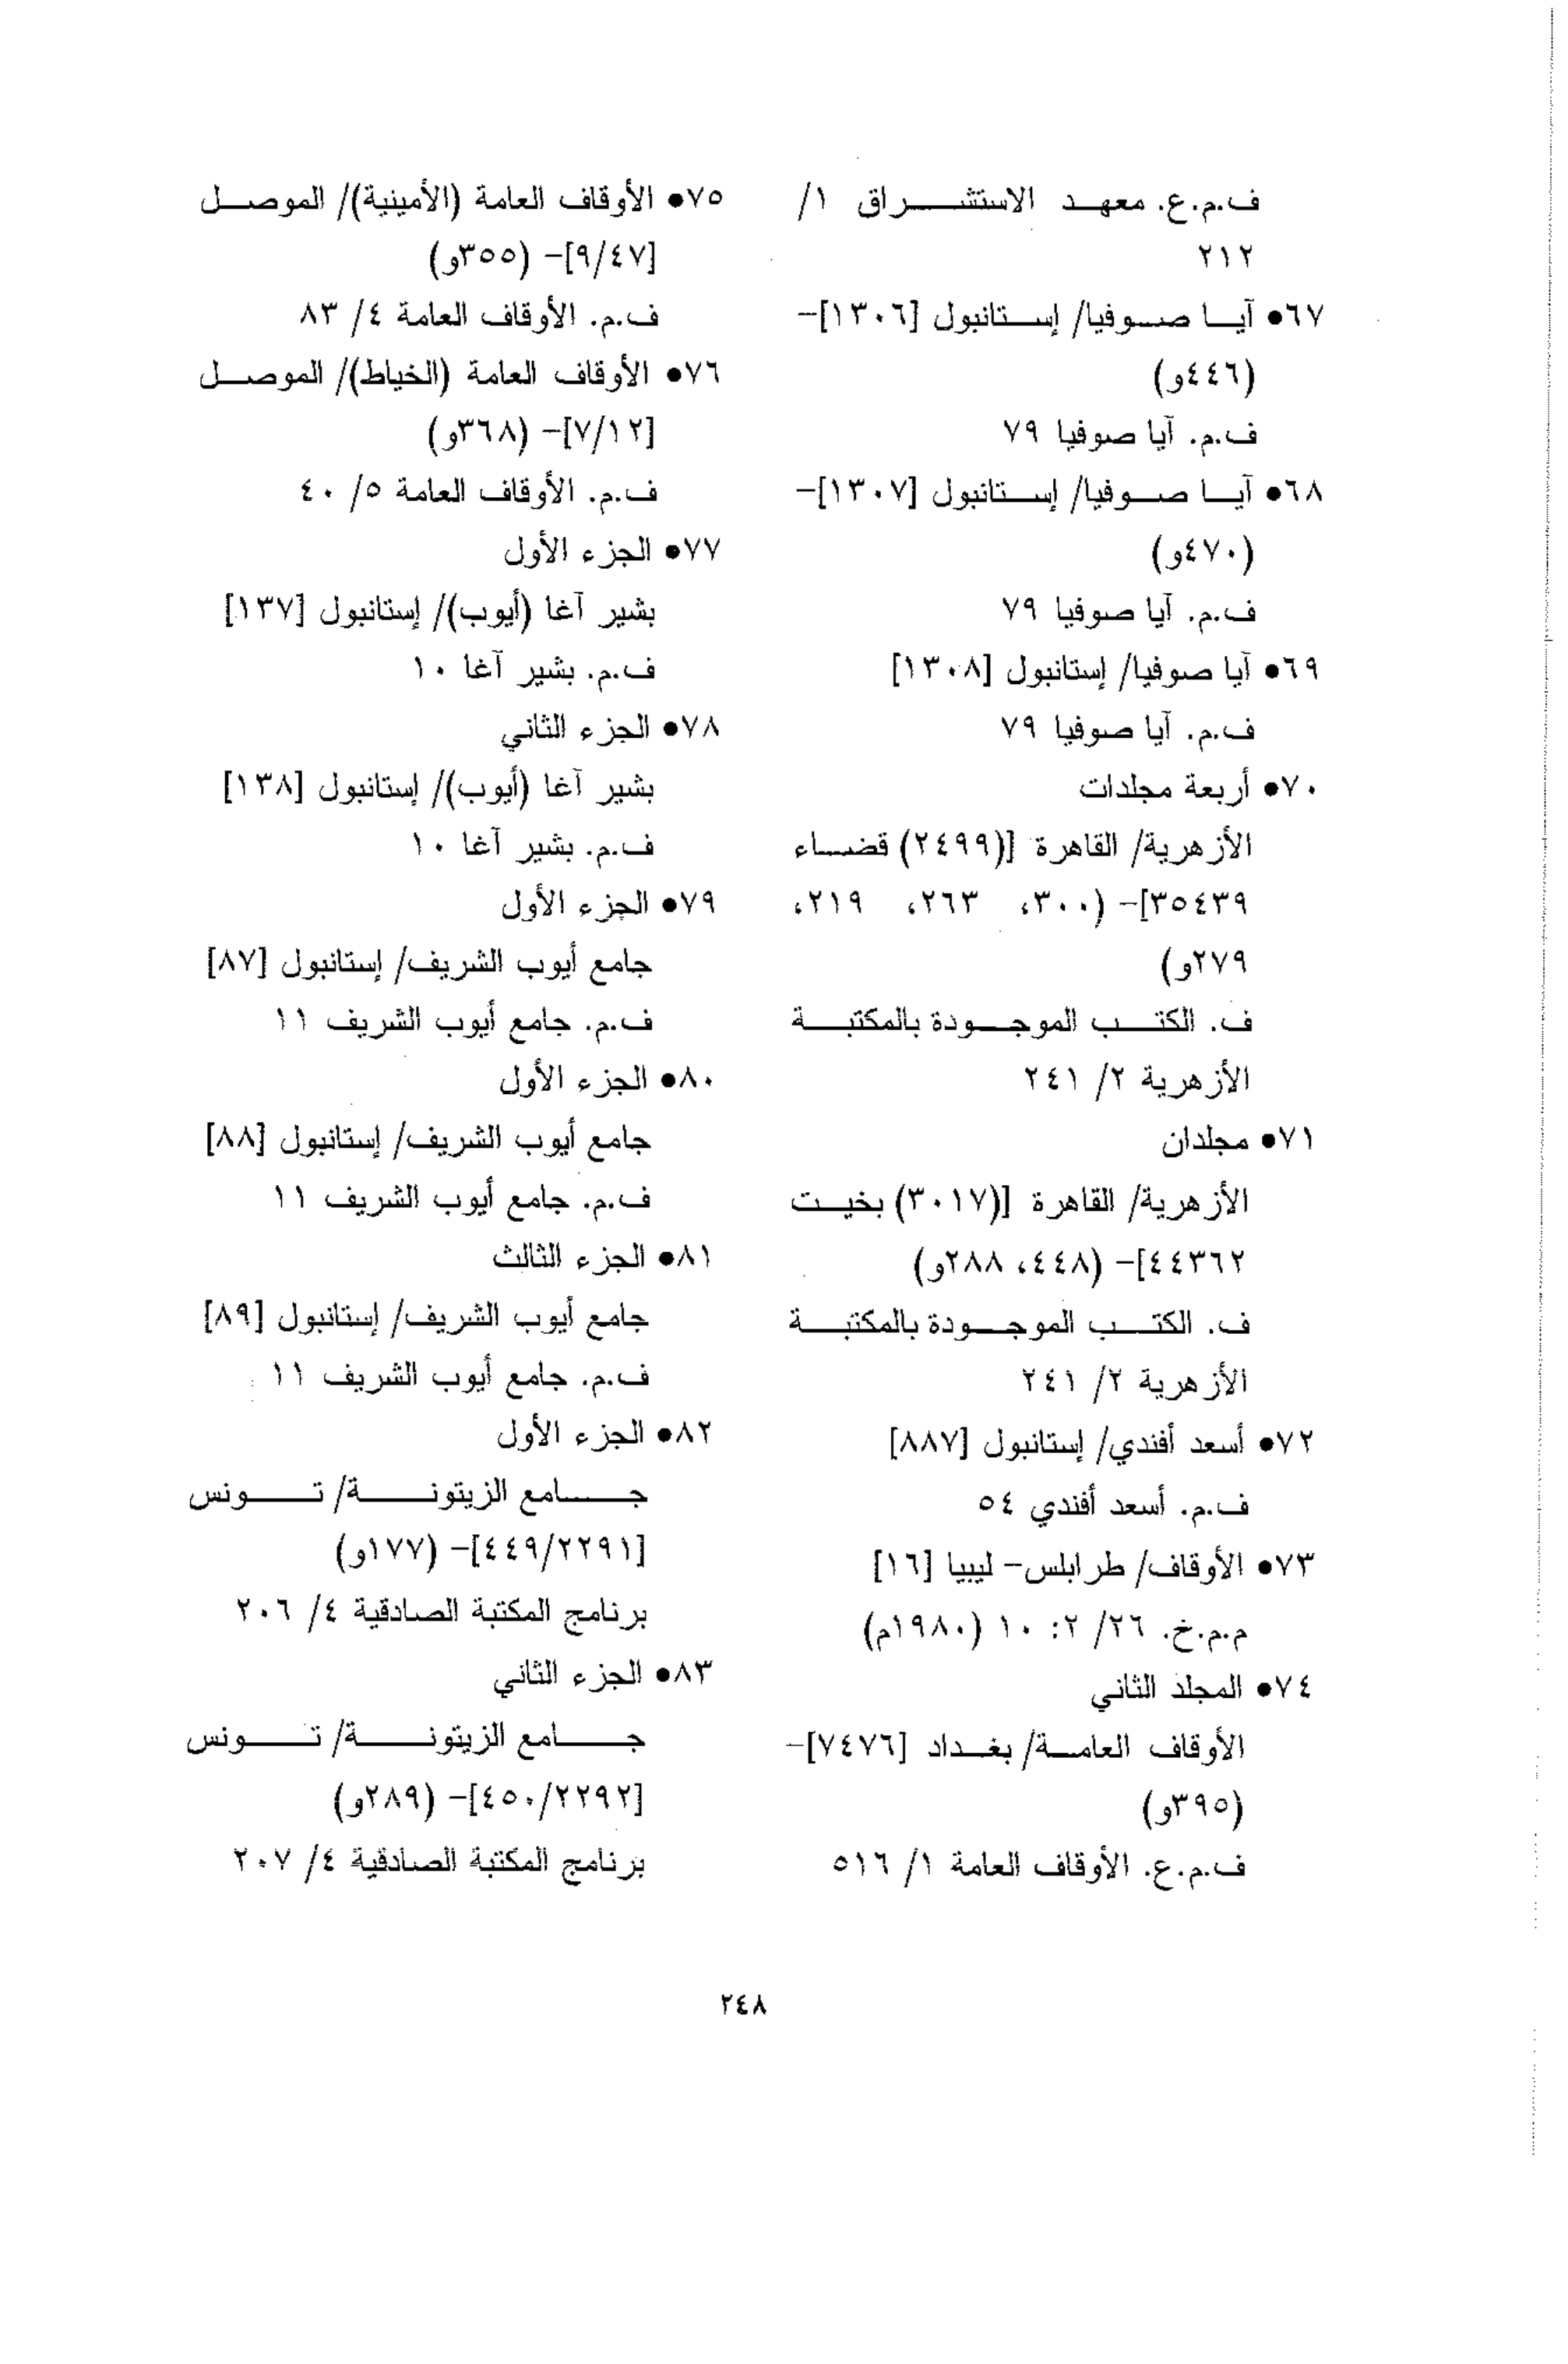 ف.م.ع. معهد الاستشراق ١/
٢١٢
٦٧● آيا صوفيا/ إستانبول [١٣٠٦]-
(٤٤٦و)
ف.م. آيا صوفيا ٧٩
٦٨● آيا صوفيا/ إستانبول [١٣٠٧]-
(٤٧٠و)
ف.م. آيا صوفيا ٧٩
٦٩● آيا صوفيا/ إستانبول [١٣٠٨]
ف.م. آيا صوفيا ٧٩
٧٠● أربعة مجلدات
الأزهرية/ القاهرة [(٢٤٩٩) قضاء
٣٥٤٣٩]- (٣٠٠، ٢٦٣، ٢١٩،
٢٧٩و)
ف. الكتب الموجودة بالمكتبة
الأزهرية ٢/ ٢٤١
٧١● مجلدان
الأزهرية/ القاهرة [(٣٠١٧) بخيت
٤٤٣٦٢]- (٤٤٨، ٢٨٨و)
ف. الكتب الموجودة بالمكتبة
الأزهرية ٢/ ٢٤١
٧٢● أسعد أفندي/ إستانبول [٨٨٧]
ف.م. أسعد أفندي ٥٤
٧٣● الأوقاف/ طرابلس- ليبيا [١٦]
م.م.خ. ٢٦/ ٢: ١٠ (١٩٨٠م)
٧٤● المجلد الثاني
الأوقاف العامة/ بغداد [٧٤٧٦]-
(٣٩٥و)
ف.م.ع. الأوقاف العامة ١/ ٥١٦
٧٥● الأوقاف العامة (الأمينية)/ الموصل
[٩/٤٧]- (٣٥٥و)
ف.م. الأوقاف العامة ٤/ ٨٣
٧٦● الأوقاف العامة (الخياط)/ الموصل
[٧/١٢]- (٣٦٨و)
ف.م. الأوقاف العامة ٥/ ٤٠
٧٧● الجزء الأول
بشير آغا (أيوب)/ إستانبول [١٣٧]
ف.م. بشير آغا ١٠
٧٨● الجزء الثاني
بشير آغا (أيوب)/ إستانبول [١٣٨]
ف.م. بشير آغا ١٠
٧٩● الجزء الأول
جامع أيوب الشريف/ إستانبول [٨٧]
ف.م. جامع أيوب الشريف ١١
٨٠● الجزء الأول
جامع أيوب الشريف/ إستانبول [٨٨]
ف.م. جامع أيوب الشريف ١١
٨١● الجزء الثالث
جامع أيوب الشريف/ إستانبول [٨٩]
ف.م. جامع أيوب الشريف ١١
٨٢● الجزء الأول
جامع الزيتونة/ تونس
[٤٤٩/٢٢٩١]- (١٧٧و)
برنامج المكتبة الصادقية ٤/ ٢٠٦
٨٣● الجزء الثاني
جامع الزيتونة/ تونس
[٤٥٠/٢٢٩٢]- (٢٨٩و)
برنامج المكتبة الصادقية ٤/ ٢٠٧
٢٤٨